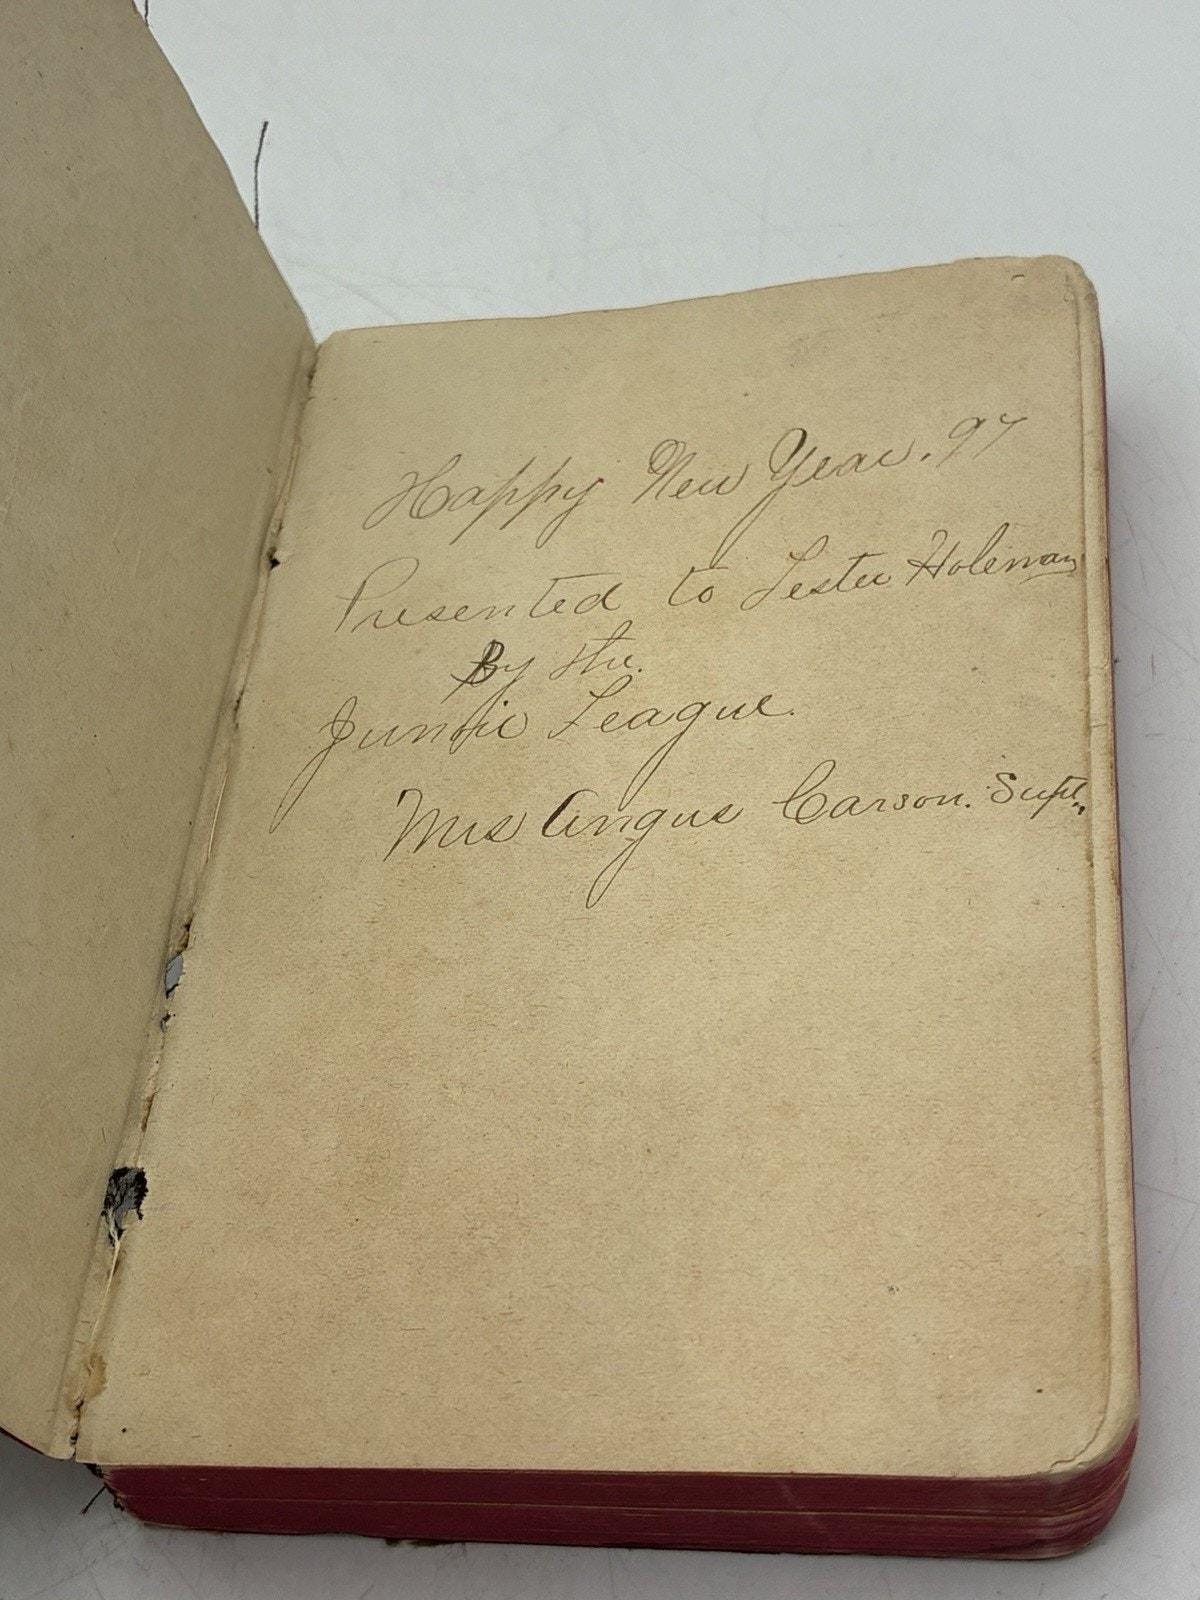 Happy New Year. 97
Presented to Lester Holeman
By the.
Junior League.
Mrs Angus Carson. Supt.